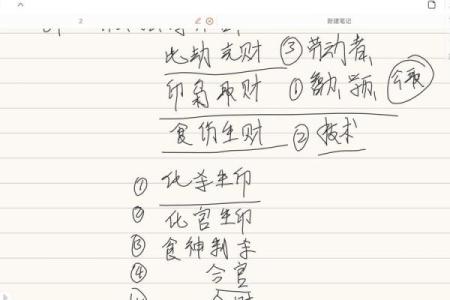 2
新建笔记
比劫克财 ③ 劳动者
印枭取财 ① 智力 学历
食伤生财 ② 技术
① 化杀生印
② 化官生印
③ 食神制杀
④ 合官